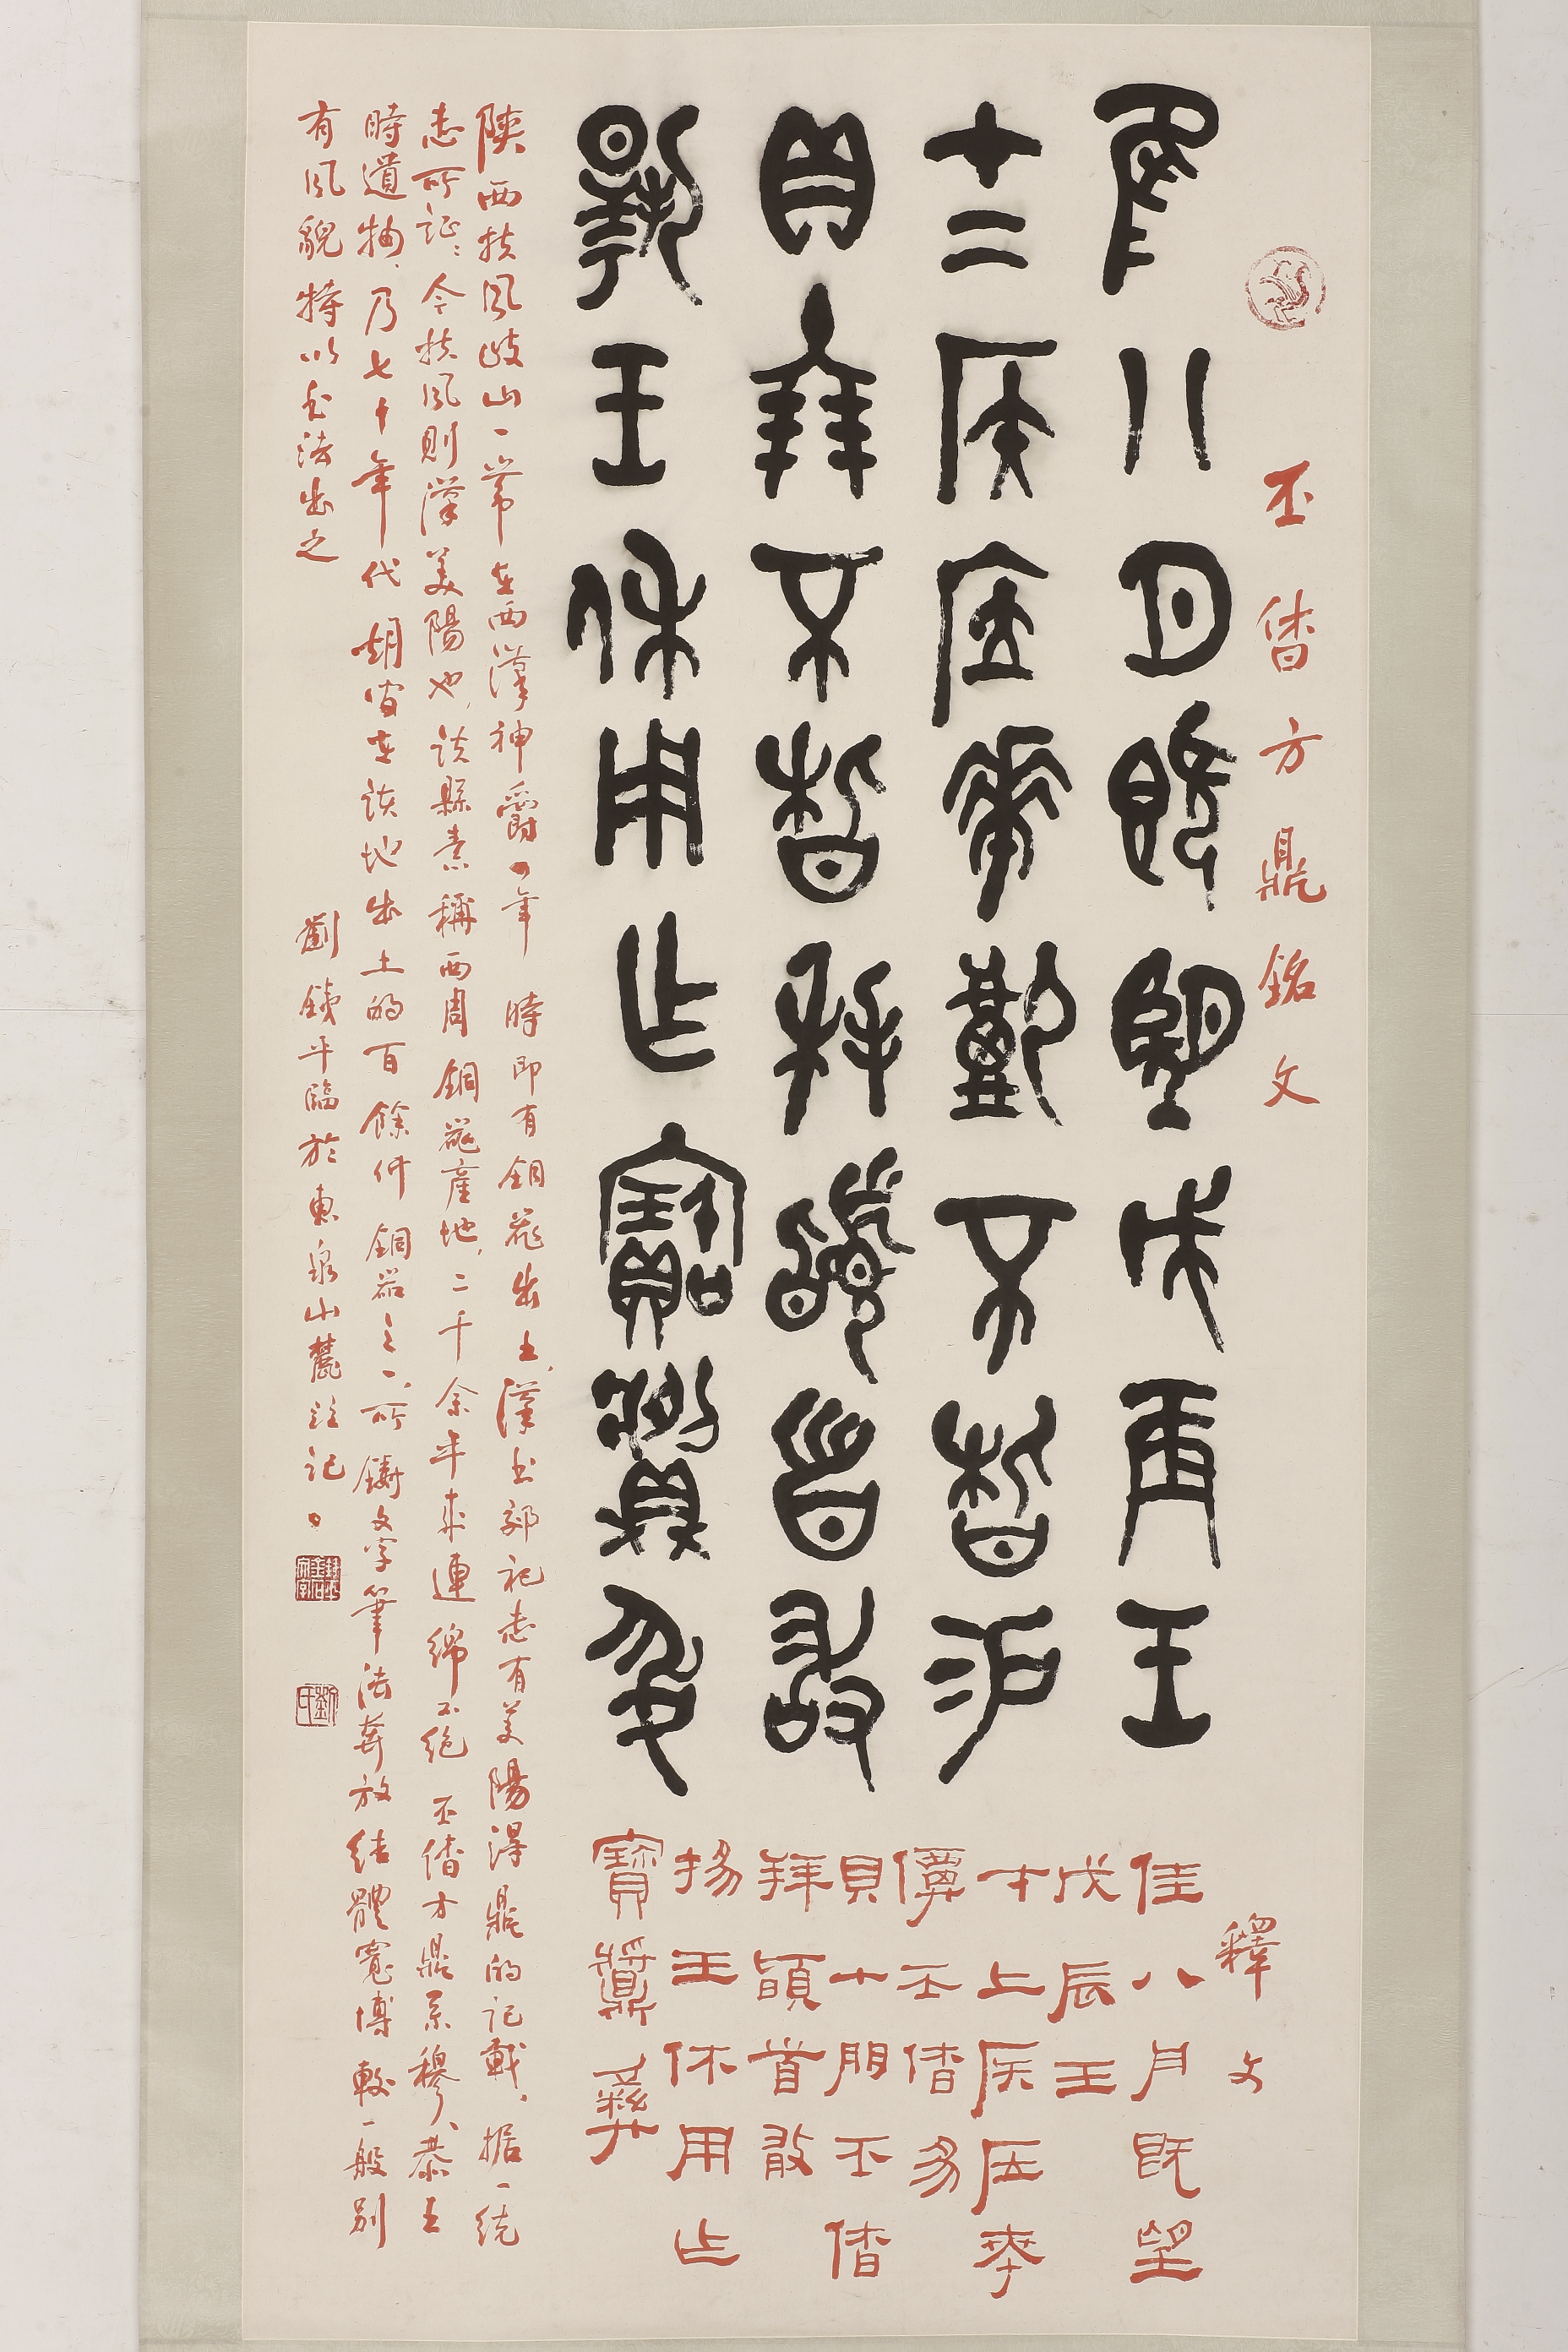 丕方鼎銘文
隹八月既望戊辰王
才上侯应𠦪不易
貝十朋不拜稽首敢
揚王休用乍寶䵼彝
釋文
佳八月既望
戊辰王
才上侯应𠦪
丕易
貝十朋丕
拜䭫首敢
揚王休用乍
寶䵼彝
陝西扶風岐山一帶在西漢神爵四年時即有銅器出土,漢書郊祀志有美陽得鼎的記載,据一統
志所証:今扶風則漢美陽也,該縣素稱西周銅器產地,二千余年來連綿不绝丕方鼎系穆、恭王
時遺物,乃七十年代在該地出土的百餘件銅器之一,所鑄文字筆法奔放結體寬博較一般别
有風貌特以書法出之
劉鐵平臨於東泉山麓並記
劉氏